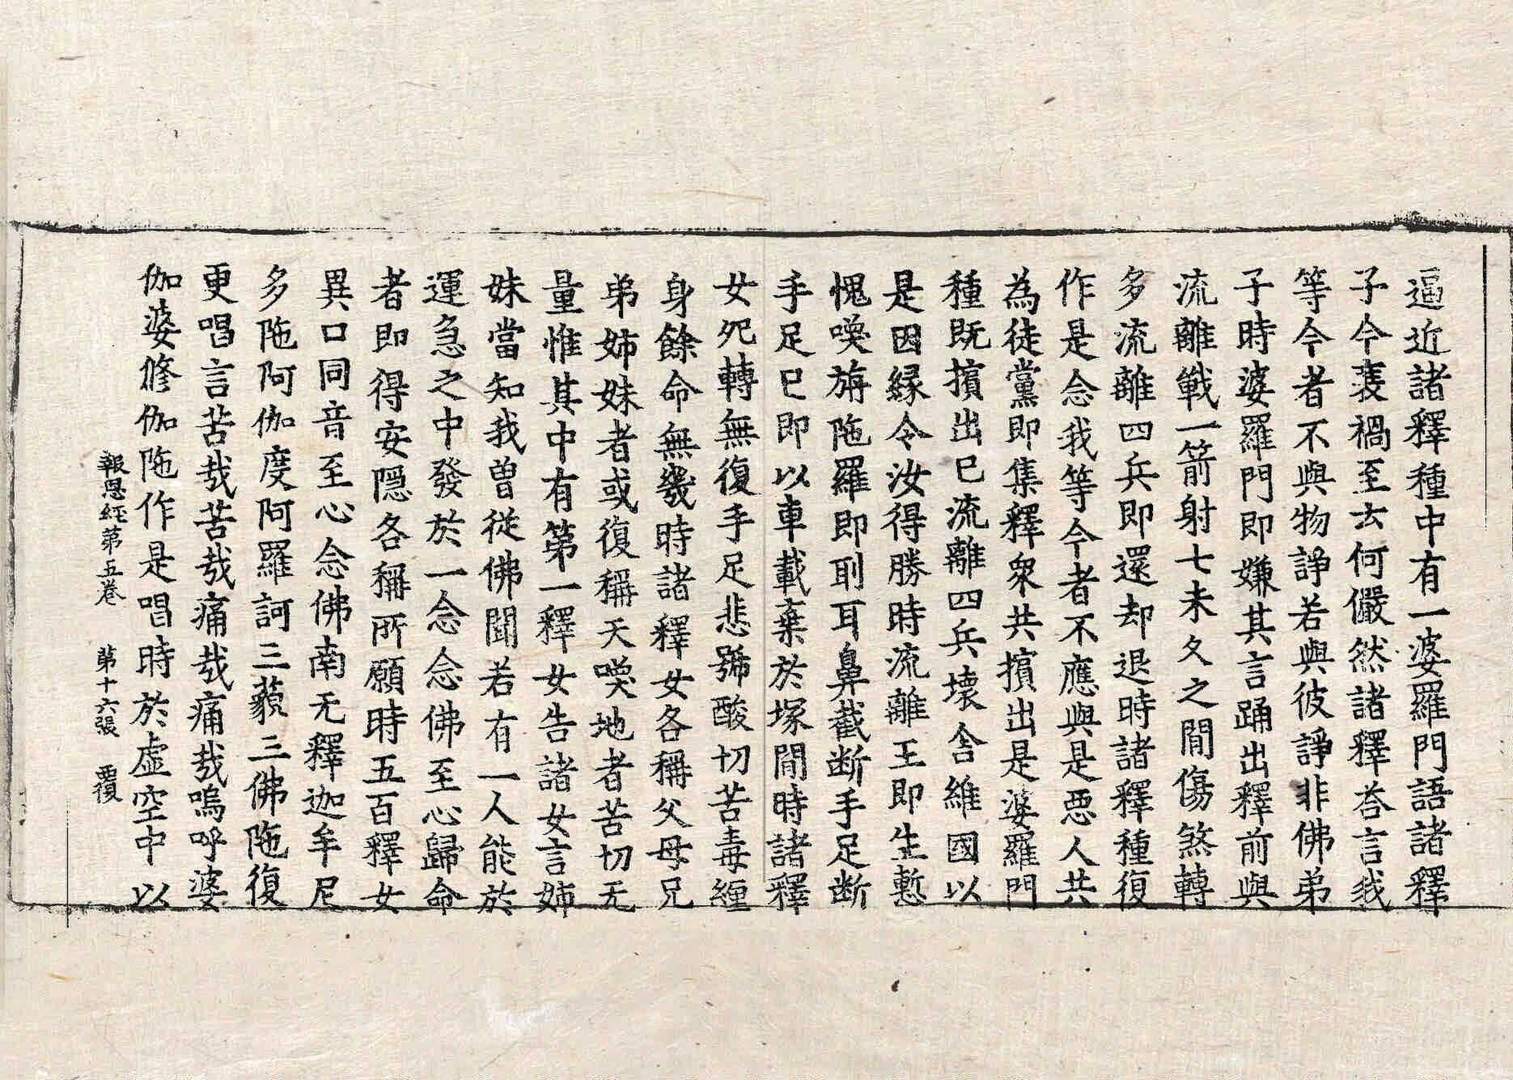 逼近諸釋種中有一婆羅門語諸釋
子今衰禍至云何儼然諸釋荅言我
等今者不與物諍若與彼諍非佛弟
子時婆羅門即嫌其言踊出釋前與
流離戰一箭射七未久之閒傷煞轉
多流離四兵即還却退時諸釋種復
作是念我等今者不應與是惡人共
為徒黨即集釋衆共擯出是婆羅門
種既擯出已流離四兵壞舍維國以
是因緣令汝得勝時流離王即生慙
愧喚旃陁羅即刵耳鼻截斷手足斷
手足已即以車載棄於塚閒時諸釋
女死轉無復手足悲號酸切苦毒纏
身餘命無幾時諸釋女各稱父母兄
弟姉妹者或復稱天喚地者苦切无
量惟其中有第一釋女告諸女言姉
妹當知我曾從佛聞若有一人能於
運急之中發於一念念佛至心歸命
者即得安隱各稱所願時五百釋女
異口同音至心念佛南无釋迦牟尼
多陁阿伽度阿羅訶三藐三佛陁復
更唱言苦哉苦哉痛哉痛哉嗚呼婆
伽婆修伽陁作是唱時於虛空中以
報恩經第五卷 第十六張 覆